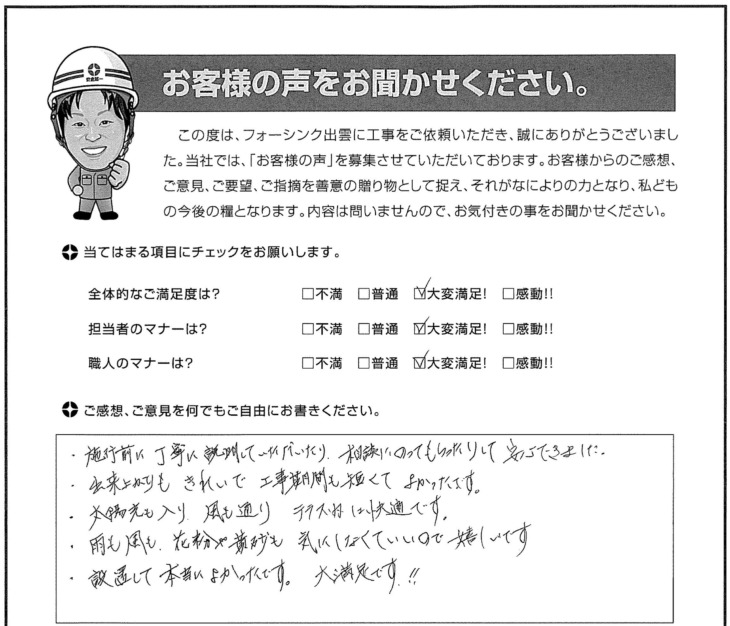 お客様の声をお聞かせください。
この度は、フォーシンク出雲に工事をご依頼いただき、誠にありがとうございまし
た。当社では、「お客様の声」を募集させていただいております。お客様からのご感想、
ご意見、ご要望、ご指摘を善意の贈り物として捉え、それがなによりの力となり、私ども
の今後の糧となります。内容は問いませんので、お気付きの事をお聞かせください。
当てはまる項目にチェックをお願いします。
全体的なご満足度は? □不満 □普通 ☑大変満足! □感動!!
担当者のマナーは? □不満 □普通 ☑大変満足! □感動!!
職人のマナーは? □不満 □普通 ☑大変満足! □感動!!
ご感想、ご意見を何でもご自由にお書きください。
・施行前に丁寧に説明していただいたり、相談にのってもらったりして安心できました。
・出来上がりもきれいで工事期間も短くてよかったです。
・太陽光も入り風も通りテラス は快適です。
・雨も風も、花粉や黄砂も気にしなくていいので嬉しいです
・設置して本当によかったです。大満足です!!